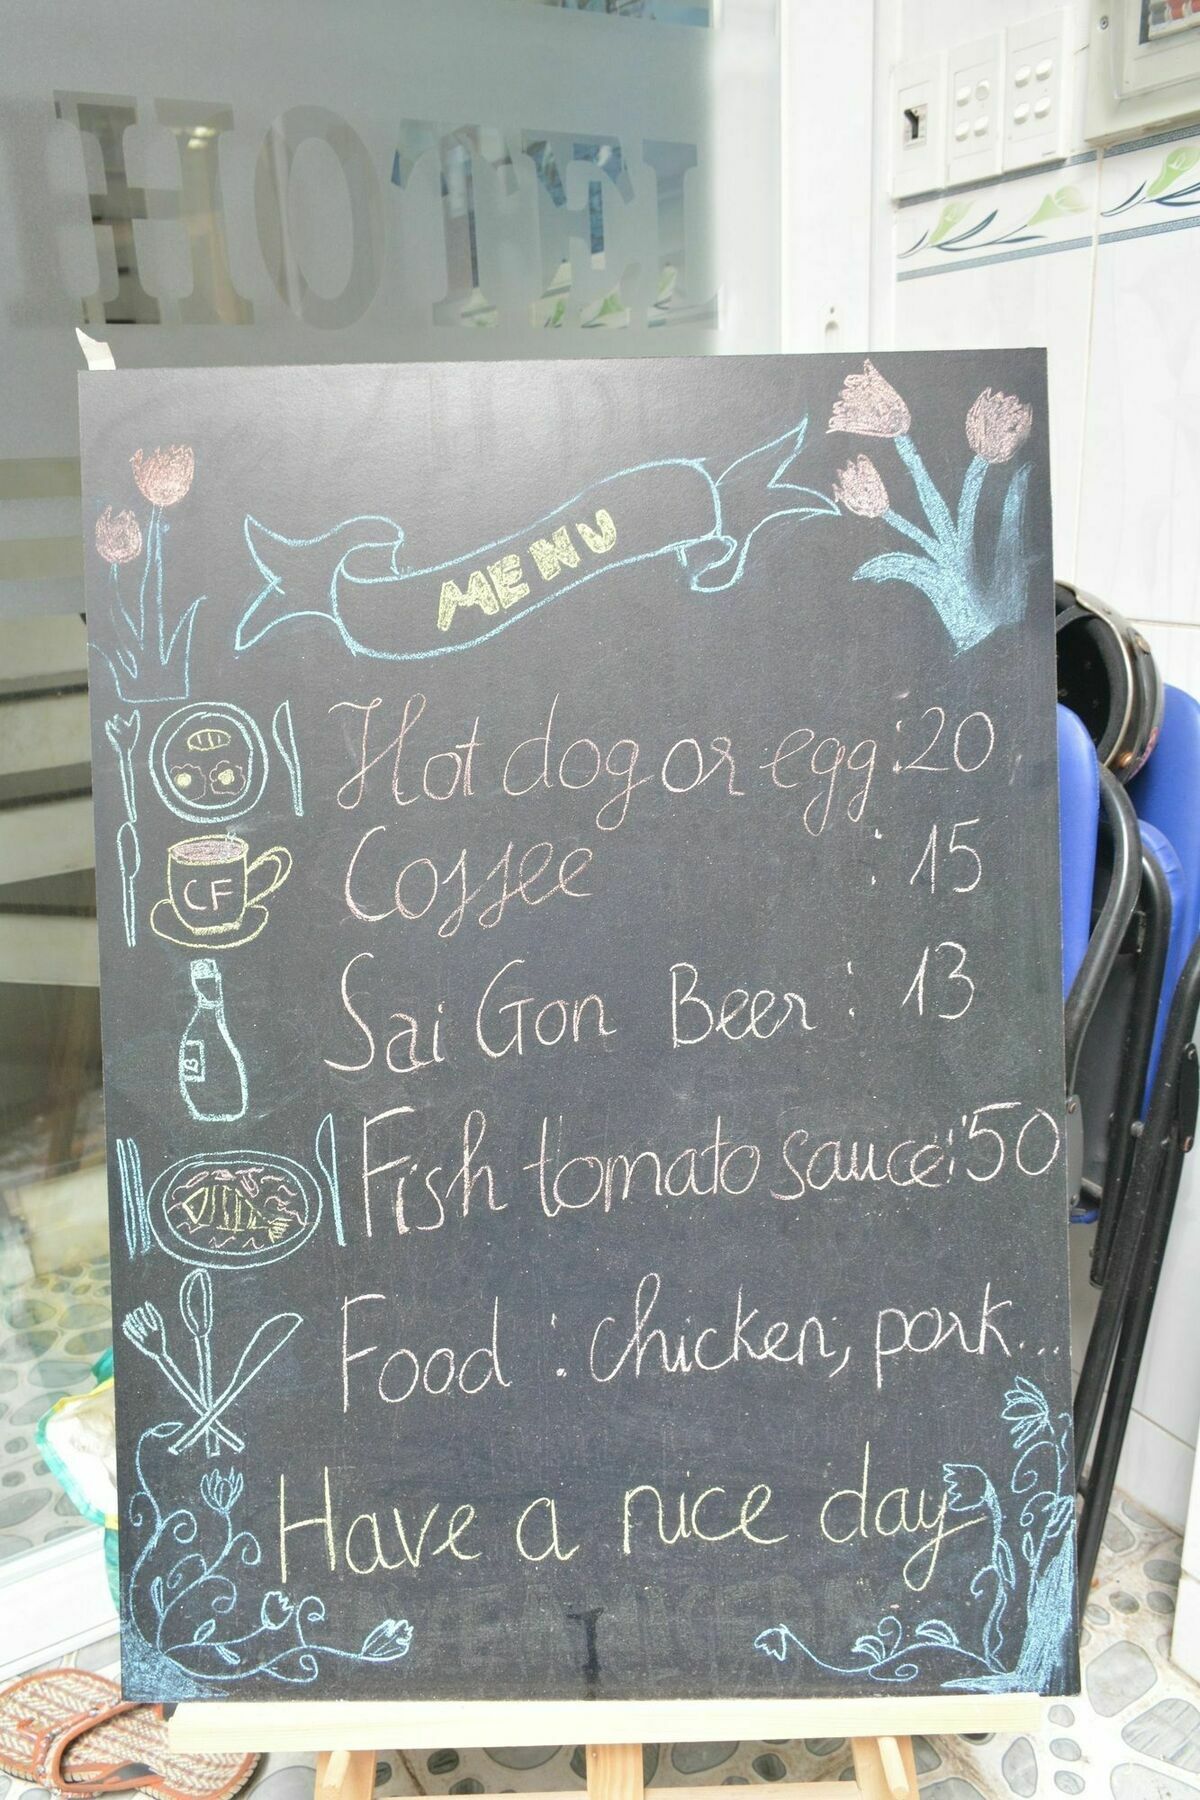 HOTEL
MENU
Hot dog or egg : 20
CF
Coffee : 15
Sai Gon Beer : 13
B
Fish tomato sauce : 50
Food : chicken, pork...
Have a nice day